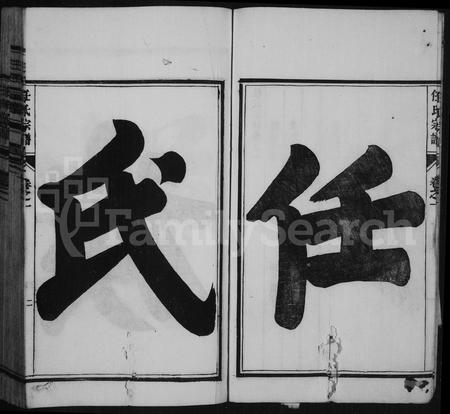 任
氏
任氏宗譜
卷之一
任氏宗譜
卷之一
二
FamilySearch